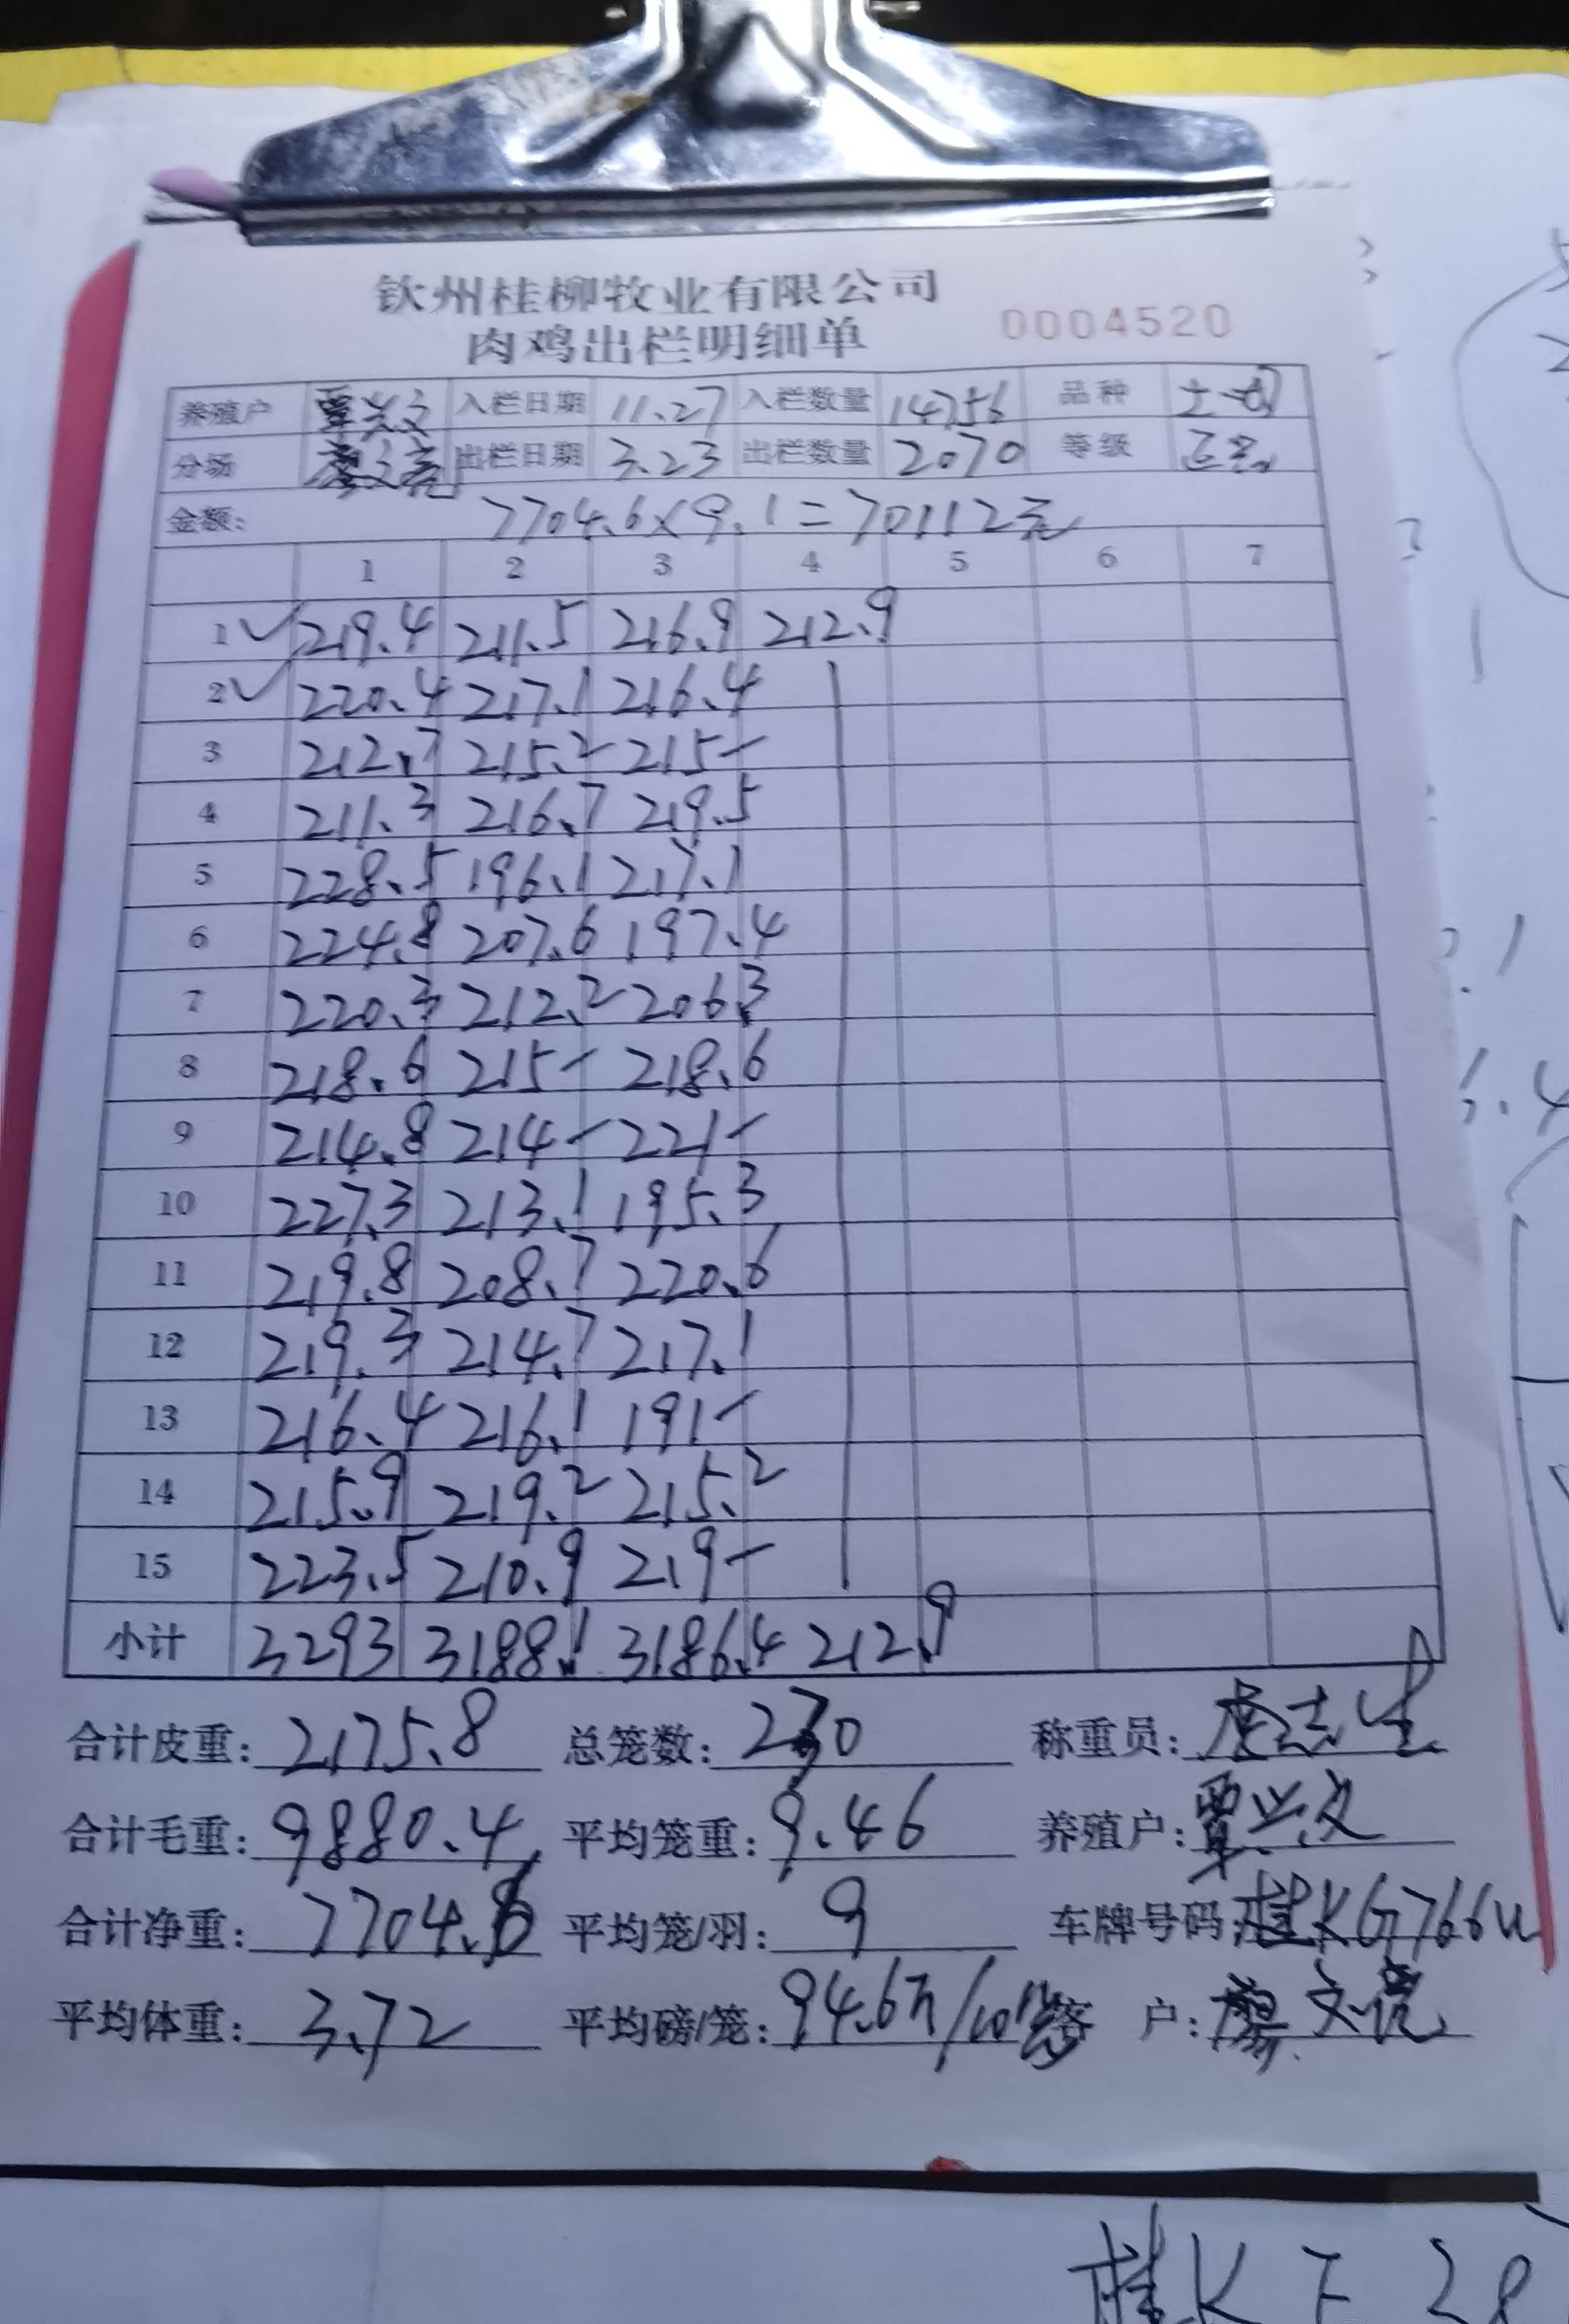 钦州桂柳牧业有限公司
肉鸡出栏明细单 0004520
养殖户 覃兴文 入栏日期 11.27 入栏数量 14756 品种 土一
分场 廖文亮 出栏日期 3.23 出栏数量 2070 等级 正品
金额: 7704.6×9.1=70112元
1 2 3 4 5 6 7
1 ✓ 219.4 211.5 216.9 212.9
2 ✓ 220.4 217.1 216.4
3 212.7 215.2 215-
4 211.3 216.7 219.5
5 228.5 196.1 217.1
6 224.8 207.6 197.4
7 220.3 212.2 206.3
8 218.6 215- 218.6
9 214.8 214- 221-
10 227.3 213.1 195.3
11 219.8 208.7 220.6
12 219.3 214.7 217.1
13 216.4 216.1 191-
14 215.9 219.2 215.2
15 223.5 210.9 219-
小计 3293 3188.1 3186.4 212.9
合计皮重: 2175.8 总笼数: 230 称重员:
合计毛重: 9880.4 平均笼重: 9.46 养殖户: 覃兴文
合计净重: 7704.6 平均笼/羽: 9 车牌号码: 桂KG766U
平均体重: 3.72 平均磅/笼: 94.6斤/10 客 户: 廖文亮
桂K F 28